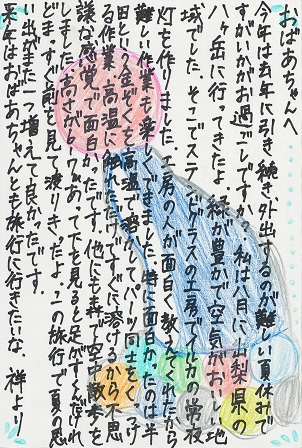 おばあちゃんへ
今年は去年に引き続き、外出するのが難しい夏休みで
すがいかがお過ごしですか？私は八月に山梨県の
八ヶ岳に行ってきたよ。緑が豊かで空気がおいしい地
域でした。そこでステンドグラスの工房でイルカの常夜
灯を作りました。工房の人が面白く教えてくれたから
難しい作業も楽しくできました。特に面白かったのは半
田という金ぞくを高温で溶かしてパーツ同士をくっつけ
る作業。高温に触れただけですぐに溶けるから不思
議な感覚で面白かったです。他にも森で空中散歩を
しました。高さが
あって下を見ると足がすくだけれ
ど、すぐ前を見て渡りきったよ。この旅行で夏の思
い出がまた一つ増えて良かったです。
来年はおばあちゃんとも旅行に行きたいな。 祥より